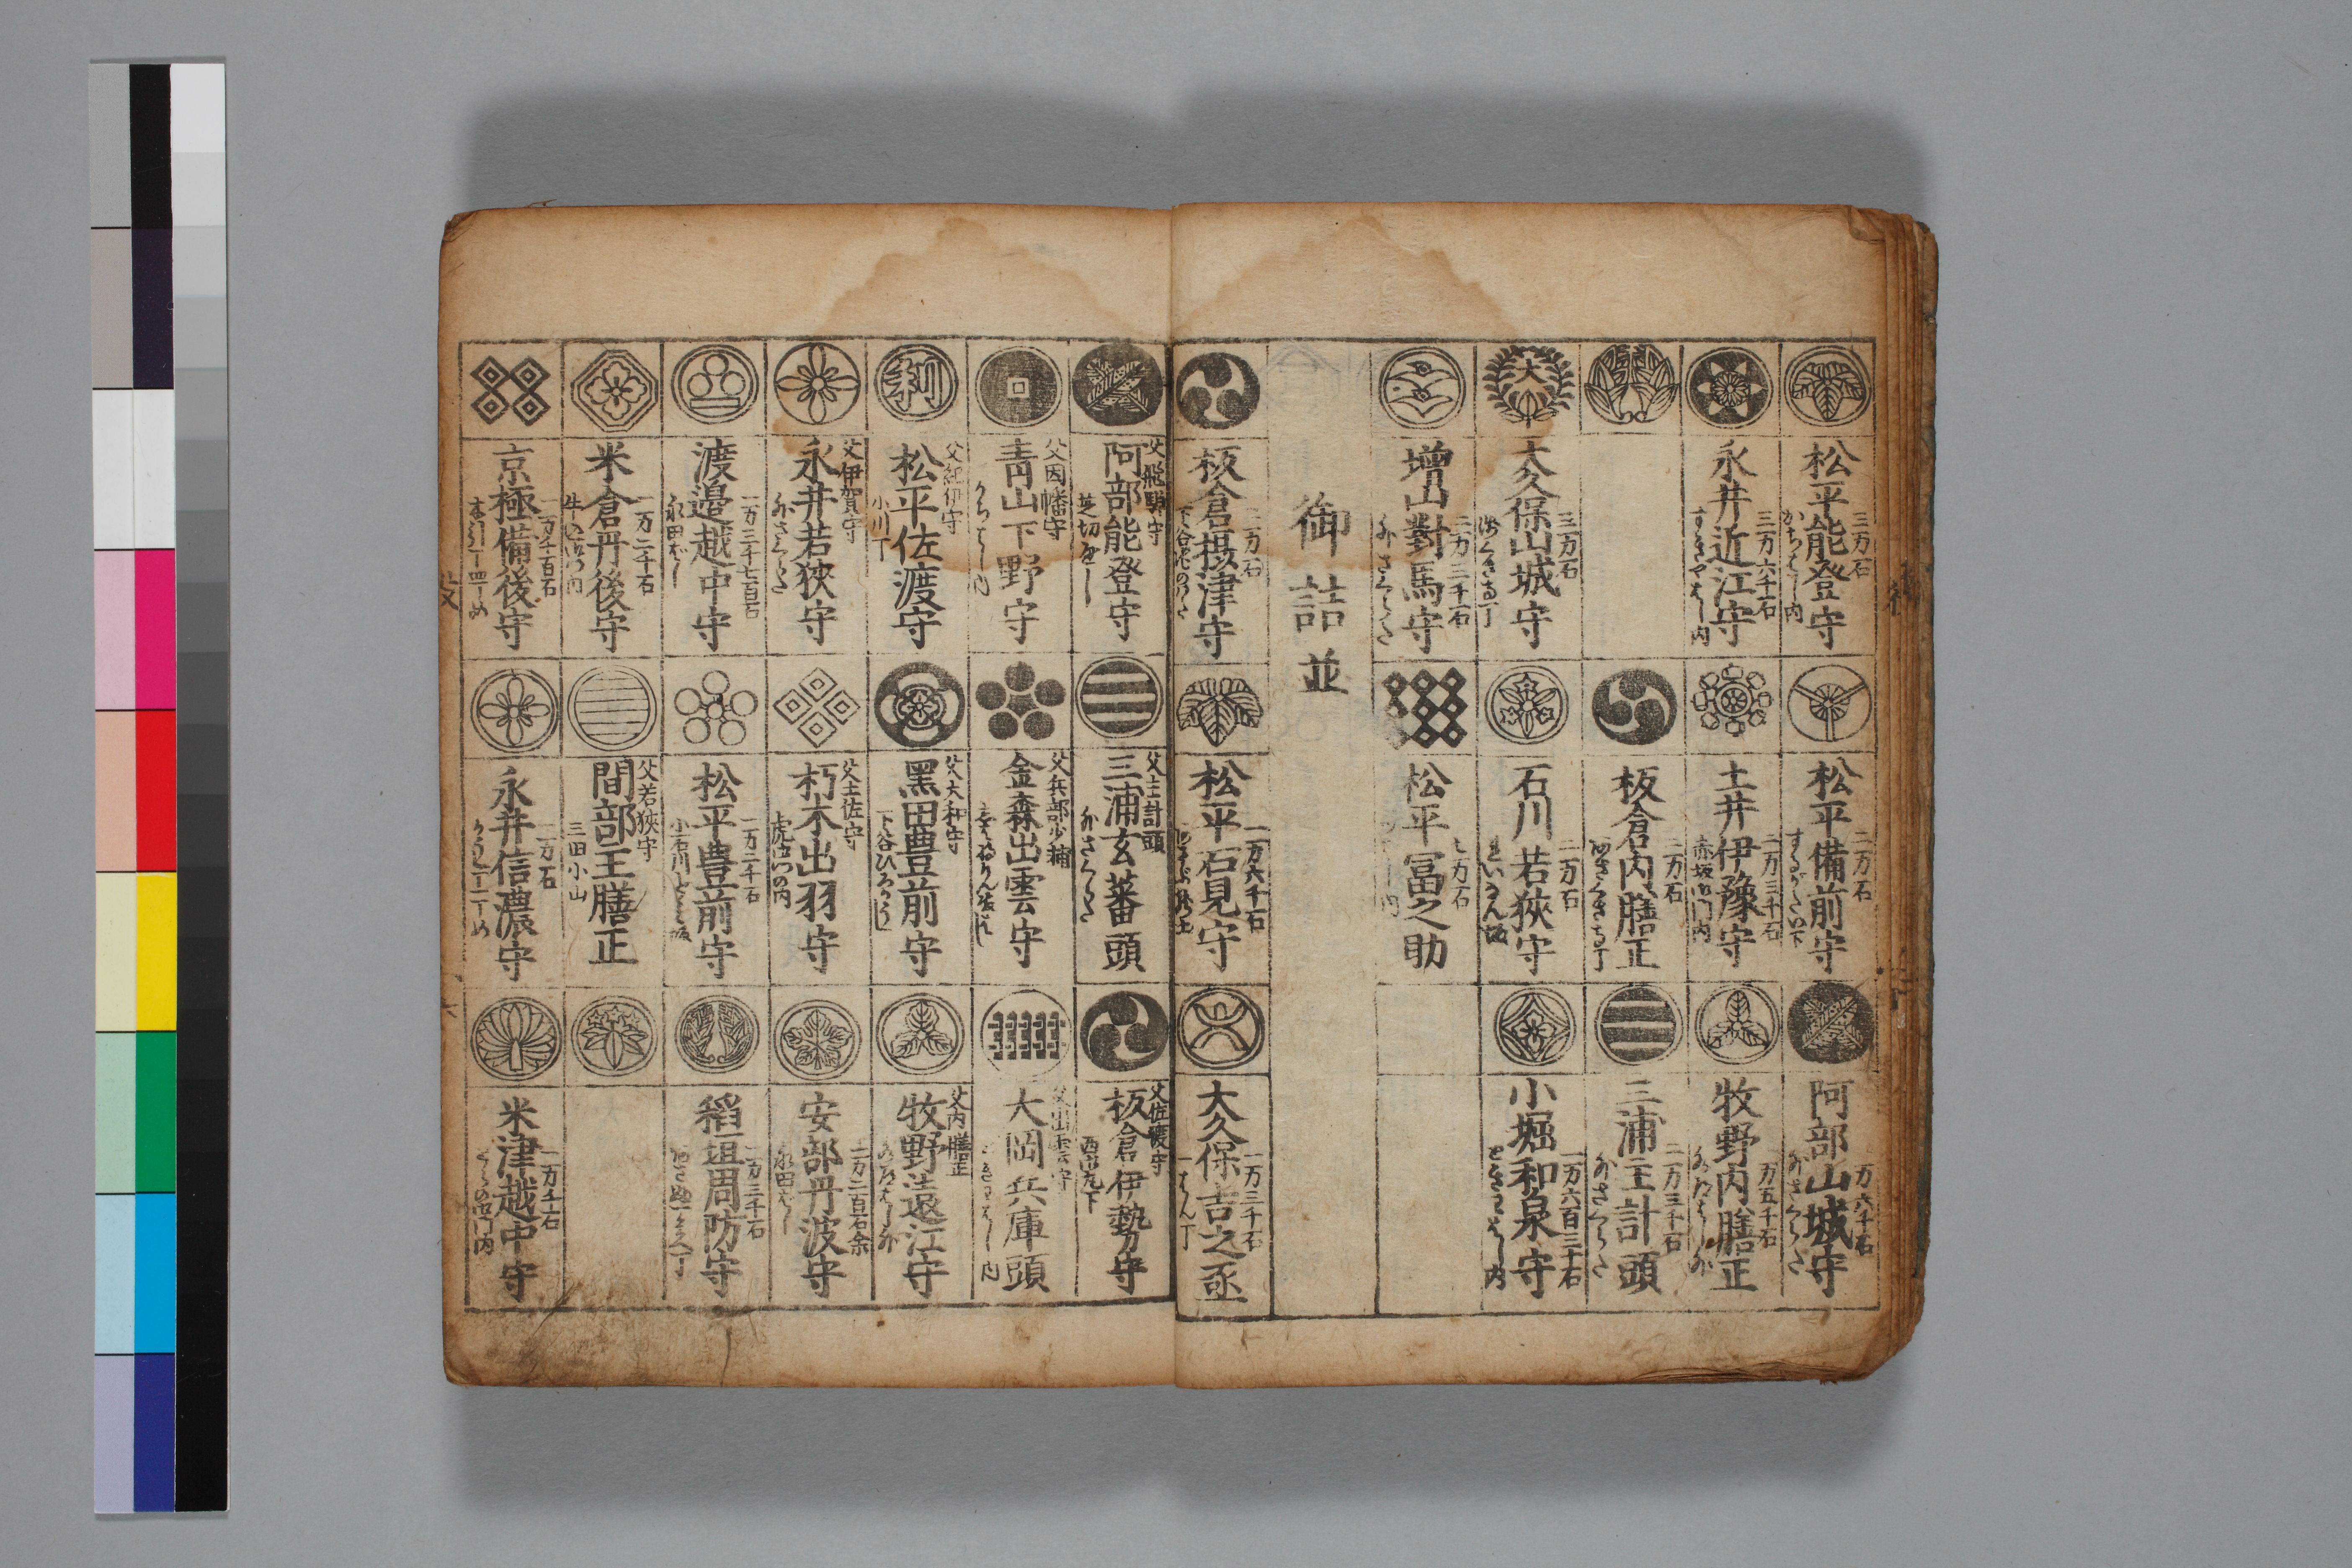 三万石
松平能登守
かちはし内
二万石
松平備前守
するがだい下
万六千石
阿部山城守
外さくらだ
三万六千石
永井近江守
すきやはし内
二万三千石
土井伊豫守
赤坂御門内
万五千石
牧野内膳正
二万石
板倉内膳正
二万三千石
三浦主計頭
外さくらだ
三万石
大久保山城守
二万石
石川若狭守
一万六百三十石
小堀和泉守
ときはばし内
二万三千石
増山對馬守
外さくらだ
七万石
松平冨之助
御詰並
二万石
板倉摂津守
一万六千石
松平石見守
一万三千石
大久保吉之丞
一ばん丁
父飛騨守
阿部能登守
芝切通し
父主計頭
三浦玄蕃頭
外さくらだ
父佐渡守
板倉伊勢守
西御丸下
父因幡守
青山下野守
父兵部少輔
金森出雲守
父出雲守
大岡兵庫頭
ときはばし内
父紀伊守
松平佐渡守
小川丁
父大和守
黒田豊前守
下谷ひろかうじ
父内膳正
牧野遠江守
父伊賀守
永井若狭守
外さくらだ
父土佐守
朽木出羽守
虎御門の内
二万二百石余
安部丹波守
永田ばし
一万三千七百石
渡邉越中守
永田ばし
一万二千石
松平豊前守
一万三千石
稲垣周防守
一万二千石
米倉丹後守
父若狭守
間部主膳正
三田小山
一万千百石
京極備後守
本引丁四丁め
一万石
永井信濃守
一万千石
米津越中守